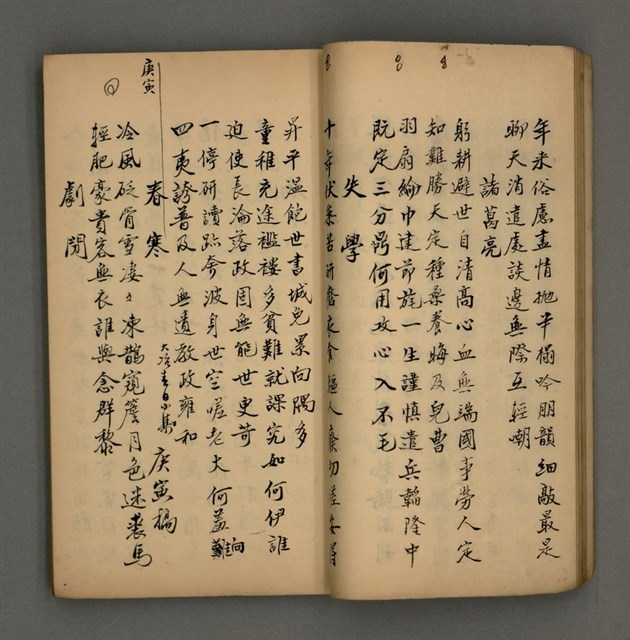 年來俗慮盡情拋半榻吟朋韻細敲最是
聊天消遣處談邊無際互輕嘲
諸葛亮
躬耕避世自清高心血無端國事勞人定
知難勝天定種桑養晦及兒曹
羽扇綸巾建節旄一生謹慎遣兵韜隆中
既定三分鼎何用攻心入不毛
失學
十年伏案苦研磨衣食驅人廢切磋安得
昇平溫飽世書城免累向隅多
童稚充途襤褸多貧難就課究如何伊誰
迫使長淪落政因無能世更苛
一停研讀跡奔波身世空嗟老大何蓋難向
四夷誇普及人無遺教政雍和
庚寅
春寒 庚寅稿
冷風砭骨雪淒々凍鵲窺簷月色迷裘馬
輕肥豪貴客無衣誰與念群黎
劇閱